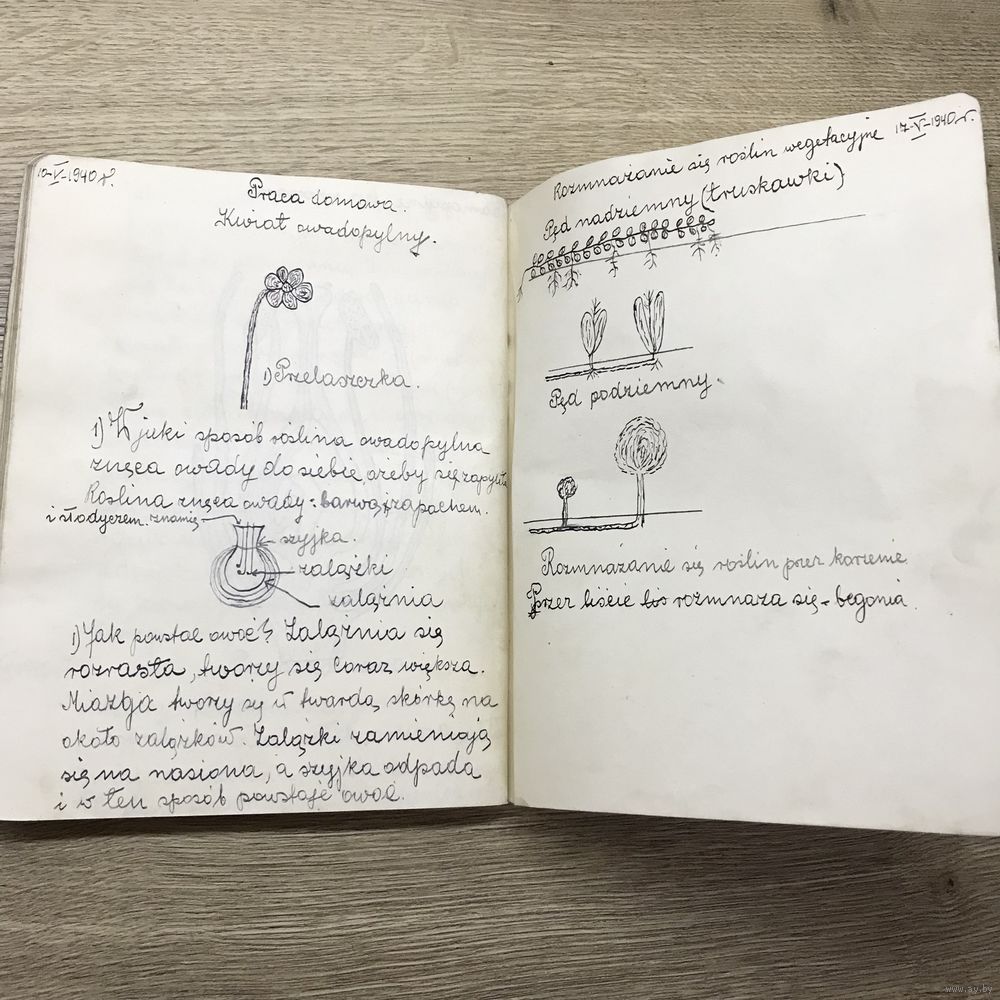 10-V-1940 r.
Praca domowa.
Kwiat owadopylny.
1) Przelaszczka.
1) W jaki sposób roślina owadopylna
znęca owady do siebie, ażeby się zapyliła
Roślina znęca owady: barwą, zapachem.
i słodyczem. znamię
szyjka.
zalążki
zalążnia
1) Jak powstał owoc? Zalążnia się
rozrasta, tworzy się coraz większa.
Miazga tworzy się w twardą skórkę na
około zalązków. Zalązki zamieniają
się na nasiona, a szyjka odpada
i w ten sposób powstaje owoc.
17-V-1940 r.
Rozmnażanie się roślin wegetacyjne
Pęd nadziemny (truskawki)
Pęd podziemny.
Rozmnażanie się roślin przez korzenie
Przez liście rozmnaża się - begonia.
www.ay.by